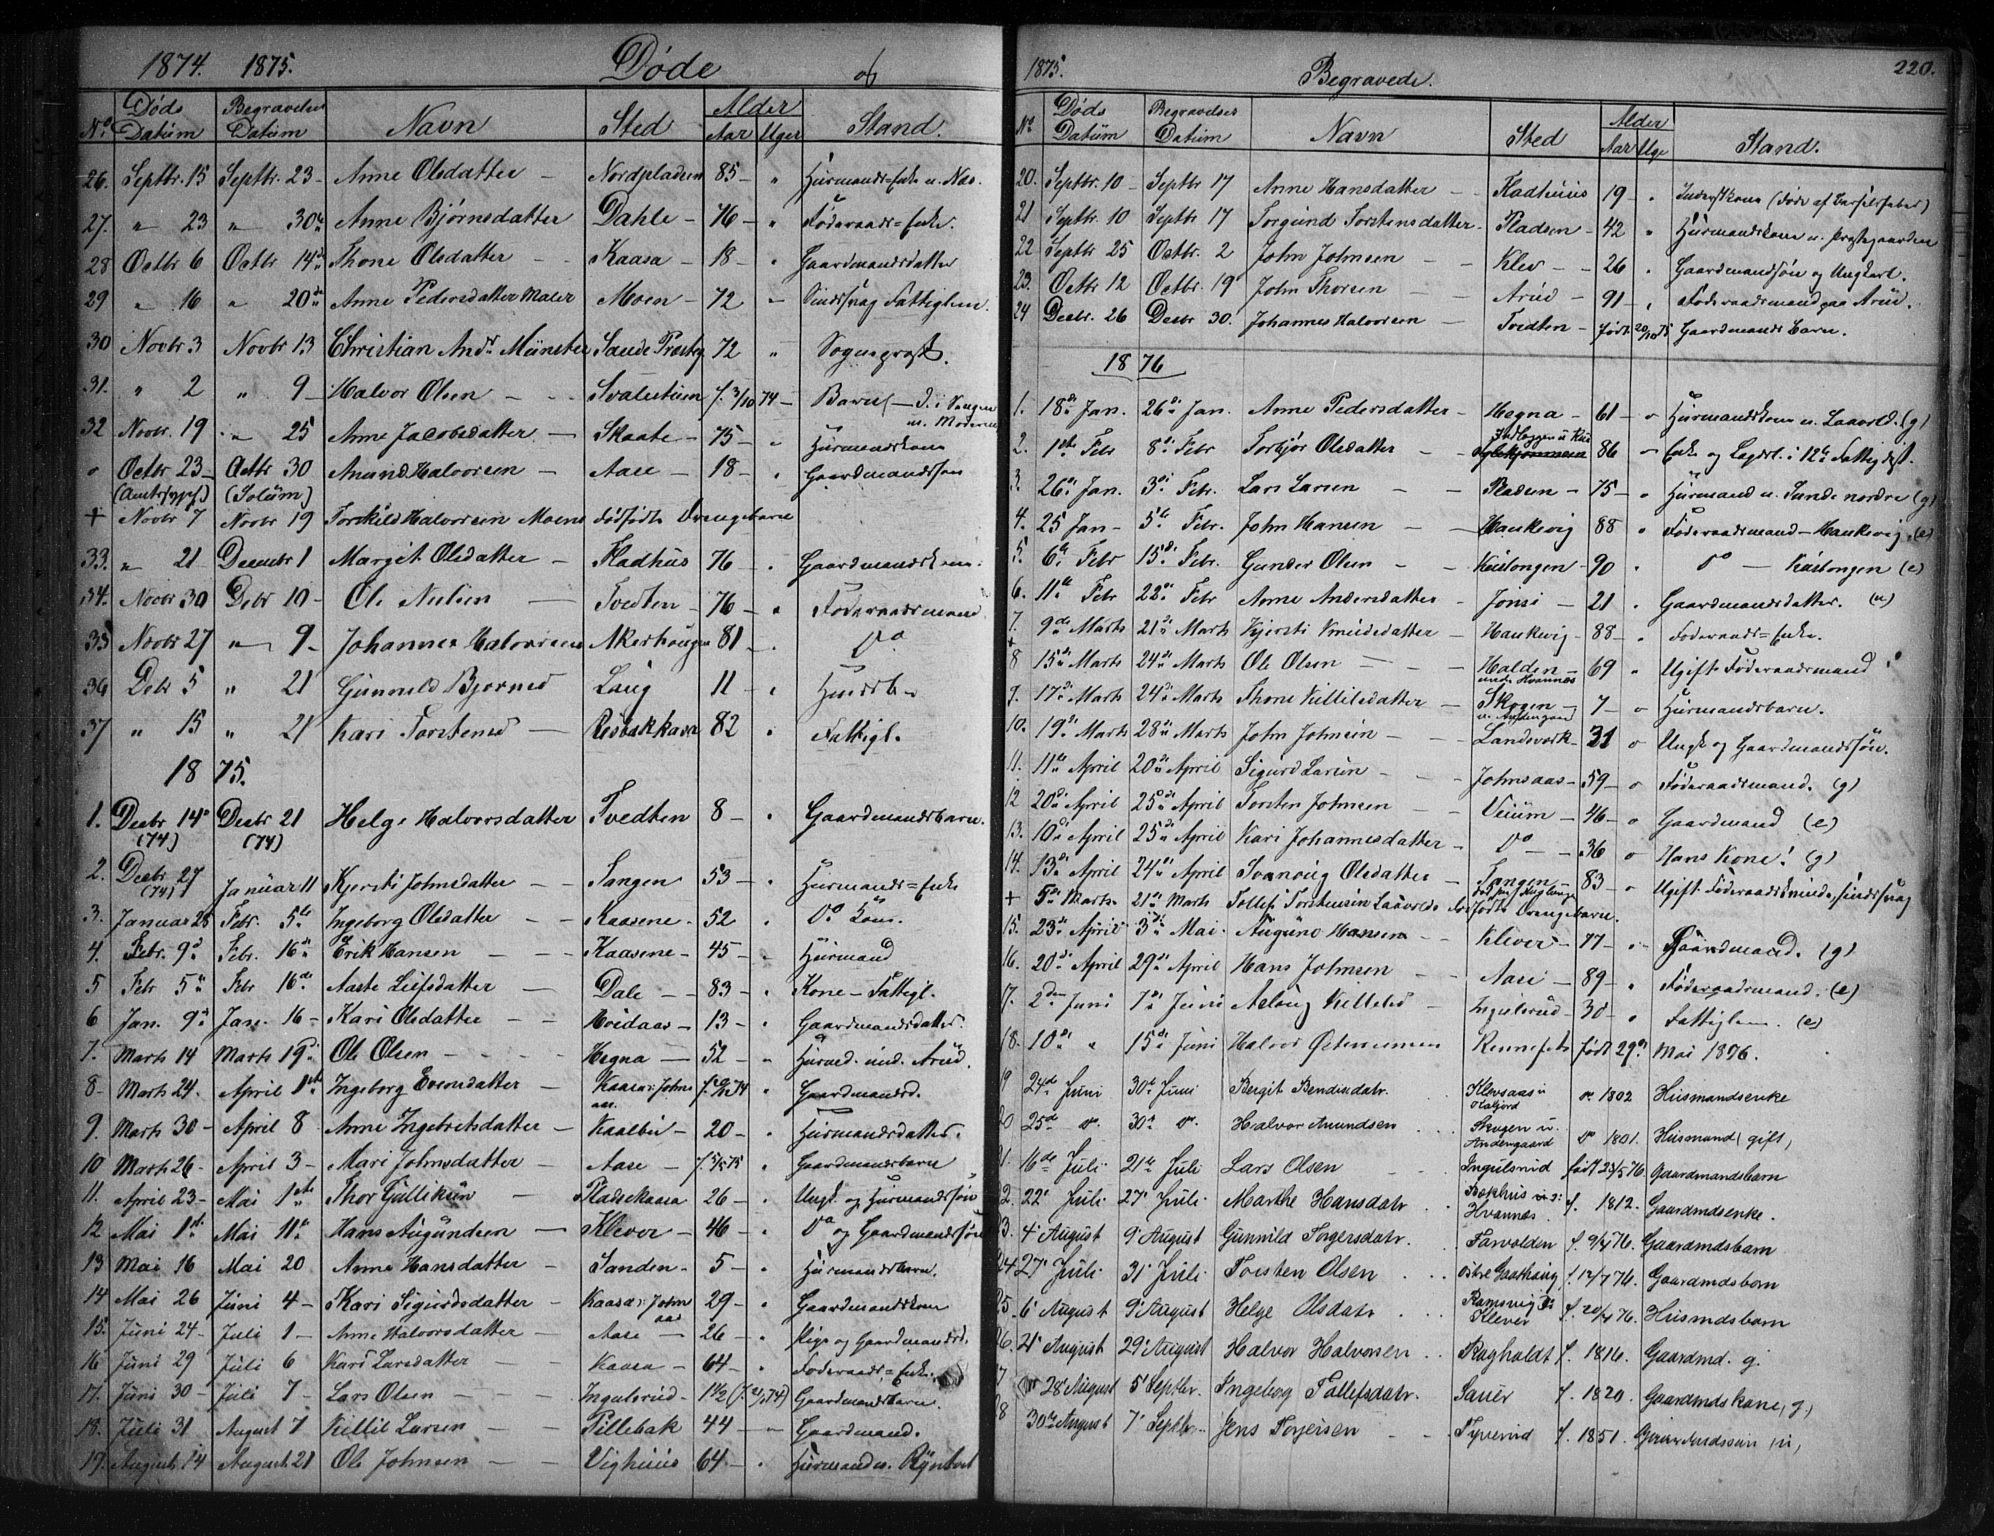 1874. 1875. Døde og
Døds Begravelses Alder
No. Datum Datum Navn Sted Aar Uger Stand.
26. Septbr. 15 Septbr. 23 - Anne Olsdatter - Nordpladsen 85 - "
27. " 23 " 30te Anne Bjørnsdatter Dahle - 76 - " Føderaads=Enke.
28 Octbr 6 Octbr 14de Thone Olsdatter - - Kaasa - 18 - " Gaardmandsdatter
29 " 16 " 20de Anne Pedersdatter Moen - 72 - Sindssvag Fattiglem.
30 Novbr 3 Novbr 13 Christian Andr. Münster Sande Præsteg 72 " Sogneprest.
31. " 2 " 9 - Halvor Olsen - - f. 3/10 74 - Barn - d. i Sengen m. Moderen
32 Novbr. 19 " 25 Anne Jacobsdatter - Skaate - 75 - " Huusmandskone
o Octbr 23 - Octbr 30 Amund Halvorsen - Aase - 18 - " Gaardmandssøn
(Amtssygeh.) (Solum)
+ Novbr 7 Novbr 19 Torkild Halvorsen Moens dødfødte Drengebarn
33. " 21 Decembr 1 Margit Olsdatter - Kladhus 76 - " Gaardmandskone.
34. Novbr 30 Debr 10 - Ole Nielsen - Tvedten - 76 - " Føderaadsmand
35 Novbr 27 " 9 - Johannes Halvorsen Akerhougen 81 - Do
36 Debr 5 " 21 Gunnild Bjørnsd Laug 11 "
37 " 15 " 21 Kari Torstensd - Risbakkasa 82 " Fattigl.
1875.
1. Decbr 14de Decbr 21 Helge Halvorsdatter Tvedten 8 - " Gaardmandsbarn.
(74) (74)
2. Decbr 27 Januar 11 Kjersti Johnsdatter - - Tangen - 53 - " Huusmands=Enke
(74)
3. Januar 28 Febr. 5te Ingeborg Olsdatter - Kaasene - 52 " Do
4. Febr. 9de Febr. 16de Erik Hansen - - Kaasene - 45 - " Huusmand
5 Febr 5te Febr 16de Aaste Leifsdatter - Dale - - 83 - " Kone - Fattigl.
6 Jan. 9de Jan. 16 - Kari Olsdatter - - Hoidaas - 13 - " Gaardmandsdatter.
7. Marts 14 Marts 19de Ole Olsen - - - Hegna - 52 - " Huusmd. und. Arud.
8 - Marts 24. April 1ste Ingeborg Evensdatter - Kaasa i Johnsaas. Gaardmandsd.
9. Marts 30 - April 8 Anne Ingebretsdatter - Kaalbu - 20 - " Huusmandsdatter.
10 Marts 26 - April 3 - Mari Johnsdatter - Aase - " Gaardmandsbarn
11. April 23 - Mai 1ste Thor Gulliksen - Pladsekaasa 26 - " Ungk. og Huusmandssøn
12 Mai 1ste Mai 11te Hans Augundsen - Klever - 46 - " Do og Gaardmandssøn
13 Mai 16 Mai 20 Anne Hansdatter - Sanden - 5 - " Huusmandsbarn.
14 Mai 26 Juni 4 - Kari Sigurdsdatter - Kaasa i Johnsaas 29 - " Gaardmandskone
15. Juni 24 - Juli 1 - Anne Halvorsdatter - Aase - 26 - " Pige og Gaardmandsd.
16 Juni 29 Juli 6 Kari Larsdatter - Kaasa - 64 - " Føderaads=Enke.
17. Juni 30 - Juli 7 - Lars Olsen - - Ingulsrud - 1 1/2 Gaardmandsbarn.
18. Juli 31 August 7 Killil Larsen - Pillebak 44 - " Gaardmand.
19. August. 14 August. 21 Ole Johnsen - Vighuus 64 - " Huusmand
1875. Begravede. 220.
Døds Begravelses Alder
No Datum Datum Navn Sted Aar Uge Stand.
20. Septbr. 10 - Septbr 17 Anne Hansdatter - - Kladhuus 19 - " Inderstkone (Døde af Barselfeber)
21 Septbr. 10 Septbr 17 Torgund Torstensdatter - Pladsen - 42 " Huusmandskone u. Prestegaarden
22 Septbr 25 Octbr. 2 John Johnsen - - Klev - - 26 " Gaardmandssøn og Ungkarl.
23. Octbr 12 Octbr. 19 John Thorsen - Arud - 91 - " Føderaadsmand paa Arud.
24 Decbr. 26 Decbr 30. Johannes Halvorsen - Tvedten - født Gaardmands Barn.
1876
1. 18de Jan. 26de Jan. Anne Pedersdatter - Hegna - 61 - " Huusmandskone u. Laavld. (g)
2. 1ste Febr 8de Febr Torbjør Olsdatter - - 86 - Enke og Lægdsl. i 12te Fattigdist.
3. 26de Jan. 3de Febr. Lars Larsen - - Pladsen - 75 - " Huusmand u. Sunde nordre (g)
4. 25 Jan - 5te Febr. John Hansen - - Haukvig 88 " Føderaadsmand - Haukevig. (e)
5. 6te Febr 15de Febr. Gunder Olsen - - Kaslongen - 90 " Do - Kaslongen (e)
6. 11te Febr 22de Febr Anne Andersdatter - Jønsi - 21 " Gaardmandsdatter. (u)
7. 9de Marts 21de Marts Kjersti Knudsdatter - Haukevig - 88 - " Føderaads=Enke.
+
8 15de Marts 24de Marts Ole Olsen - - - Halden - 69 " Ugift Føderaadsmand
under Hvannes
9. 17de Marts 24de Marts Thone Killilsdatter - Skogen - 7 - o Huusmandsbarn.
u. Andengaard
10. 19de Marts 28de Marts John Johnsen - - Landsverk - 31 o Ungk og Gaardmandssøn.
11. 11te April 20de April Sigurd Larsen - - Johnsaas - 59 - o Føderaadsmand. (g)
12 20de April 25de April Torsten Johnsen - Veium - 46 - o Gaardmand (e)
13. 10de April 25de April Kari Johannesdatter - Do - - 36 o Hans Kone! (g)
14. 13de April 24de April Svanoug Olsdatter - Tangen - 83 - "
+ 5te Marts - 21de Marts Tollef Torstensen Laavolds dødfødte Drengebarn.
15. 23de April 3de Mai - Augund Hansen - - Klever - 77 - Gaardmand. (g)
16. 20de April 29de April Hans Johnsen - Aase - 89 - " Føderaadsmand. (e)
17. 2den Juni 7de Juni Aslaug Killilsd - Ingulsrud - 30 - " Fattiglem. (e)
18. 10de " 15de Juni Halvor Rennefet født 29de Mai 1876.
19 24de Juni 30te Juni Bergit Bendiksdatr. do 1802 Husmandsenke
20 25de do 30te do. Halvor Amundsen . . Skogen u. Andengaard do 1801. Husmand (gift)
21. 16de Juli 21de Juli Lars Olsen - - Ingulsrud født 23/5 76 Gaardmandsbarn
22. 22' Juli 27' Juli. Marthe Hansdatr . Bækhus u. Hvannes. f. 1812. Gaardmdsenke.
23. 4' August 9' August Gunnild Torgersdatr. . Farvolden f. 9/4 76. Gaardmdsbarn
24 27' Juli 31' Juli. Torsten Olsen . . østre Gaakhaug f. 12/7 76. Gaardmdsbarn
25. 6' August 9' August Helge Olsdatr . . Ramsvig Klever f. 20/4 76. Husmdsbarn
26. 21' August 29' August Halvor Halvorsen . . Ragholdt f. 1816. Gaardmd. g.
27 28' August 5' Septbr. Ingeborg Tollefsdatr. . Sauer f. 1820. Gaardmdskone, g.
28 30te August 7' Septbr. Jens Torjersen - - Tyverud f. 1851. Gaardmdssøn (u)